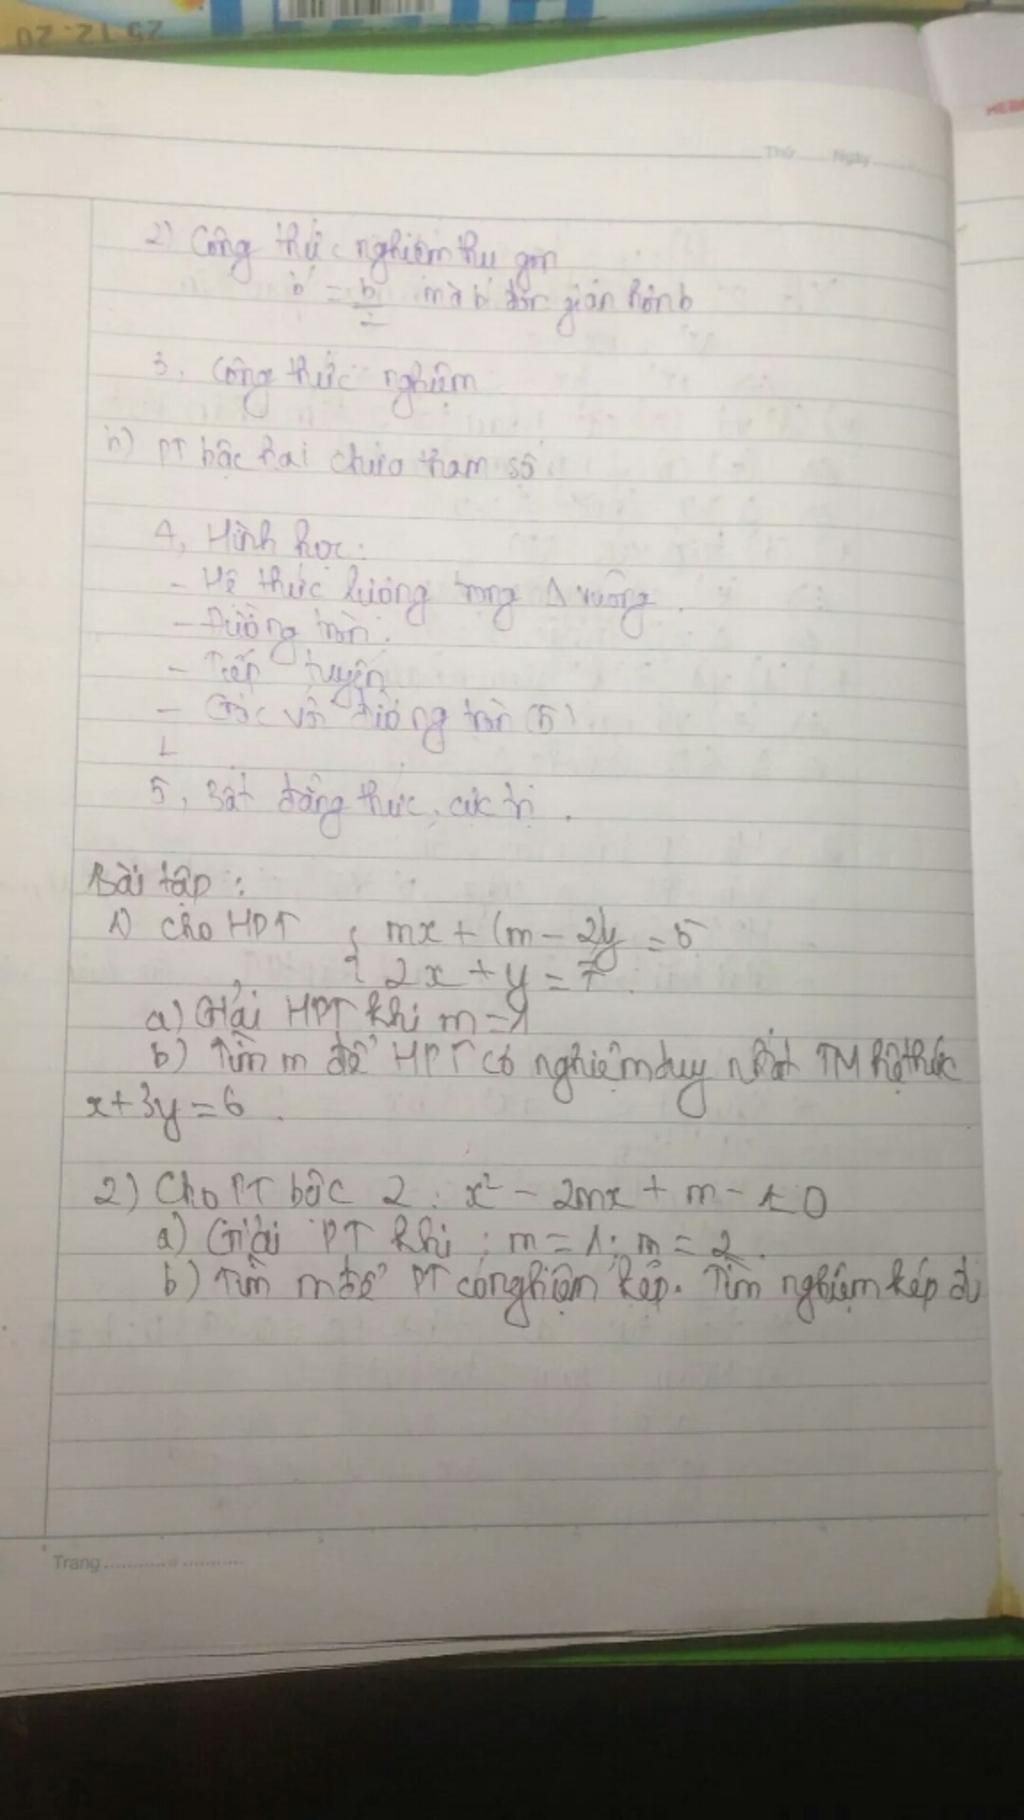 25 12: 20
Thứ Ngày
2) Công thức nghiệm thu gọn
b' = b/2 mà b' đơn giản hơn b
3, Công thức nghiệm
n) PT bậc hai chứa tham số
4, Hình học:
- Hệ thức lượng trong Δ vuông.
- Đường tròn.
- Tiếp tuyến
- Góc với đường tròn (5)
5, Bất đẳng thức, cực trị.
Bài tập:
1) Cho HPT { mx + (m - 2)y = 5
{ 2x + y = 7.
a) Giải HPT khi m = 1
b) Tìm m để HPT có nghiệm duy nhất TM hệ thức
x + 3y = 6.
2) Cho PT bậc 2: x² - 2mx + m - 1 = 0
a) Giải PT khi: m = 1; m = 2.
b) Tìm m để PT có nghiệm kép. Tìm nghiệm kép đó
Trang